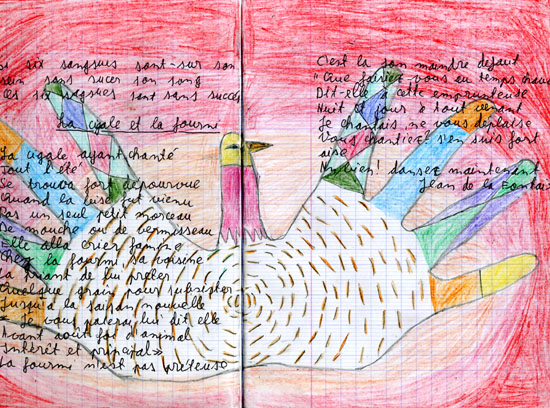 si six sangsues sont sur son
sein sans sucer son sang
Ces six sangsues sont sans succès
La cigale et la fourmi
La cigale ayant chanté
Tout l'été
Se trouva fort dépourvue
Quand la bise fut venue
Pas un seul petit morceau
De mouche ou de vermisseau
Elle alla crier famine
Chez la fourmi sa voisine
La priant de lui prêter
Quelque grain pour subsister
Jusqu'à la saison nouvelle
Je vous paierai lui dit elle
Avant août foi d'animal
intérêt et principal»
La fourmi n'est pas prêteuse
C'est là son moindre défaut
"Que faisiez-vous au temps chaud
Dit-elle à cette emprunteuse
Nuit et jour à tout venant
Je chantais, ne vous déplaise
Vous chantiez! j'en suis fort
aise!
Eh bien! dansez maintenant
Jean de la Fontaine